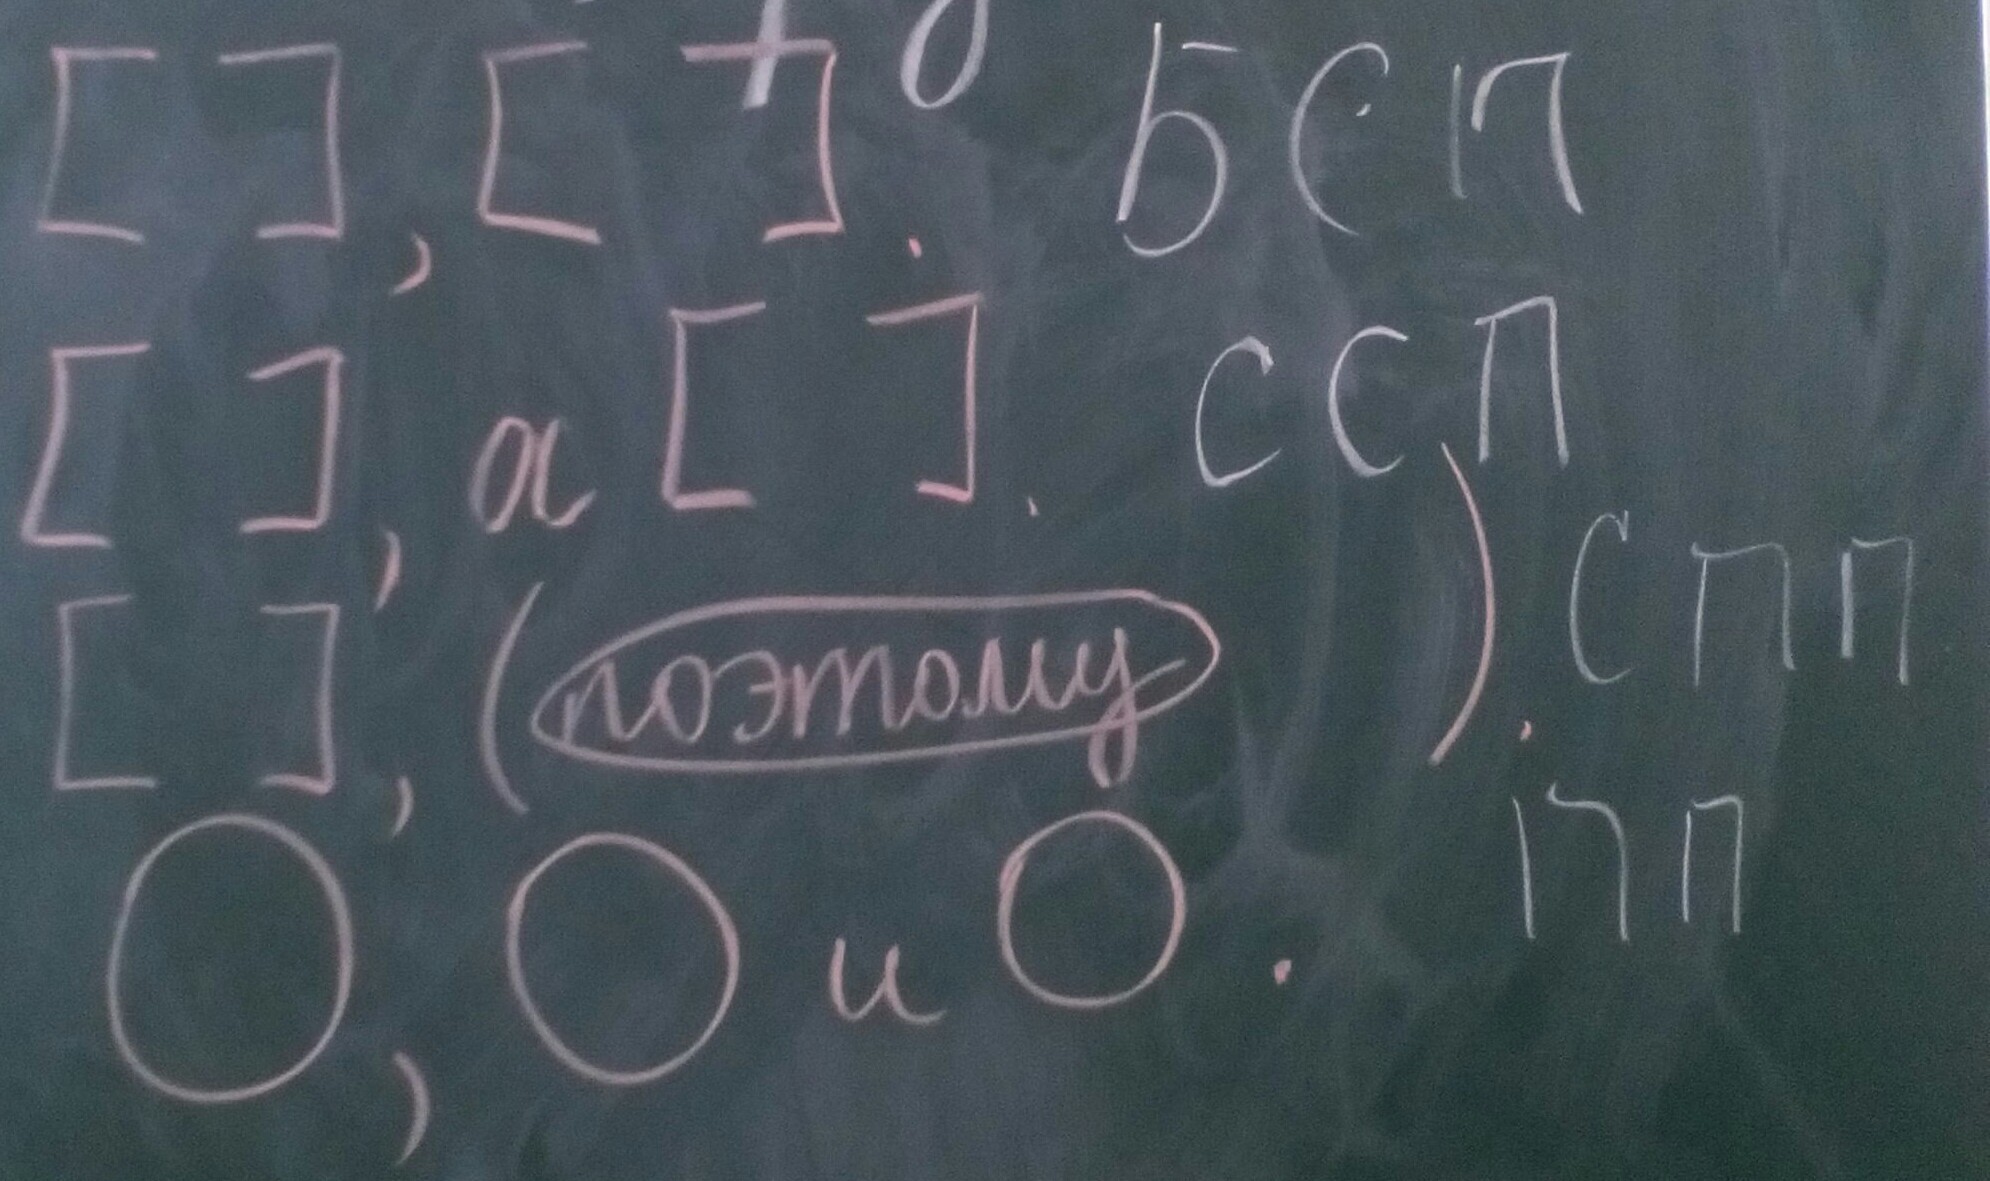 [ ], [ ]. БСП
[ ], а [ ]. ССП
[ ], (поэтому ). СПП
О, О и О. ПП